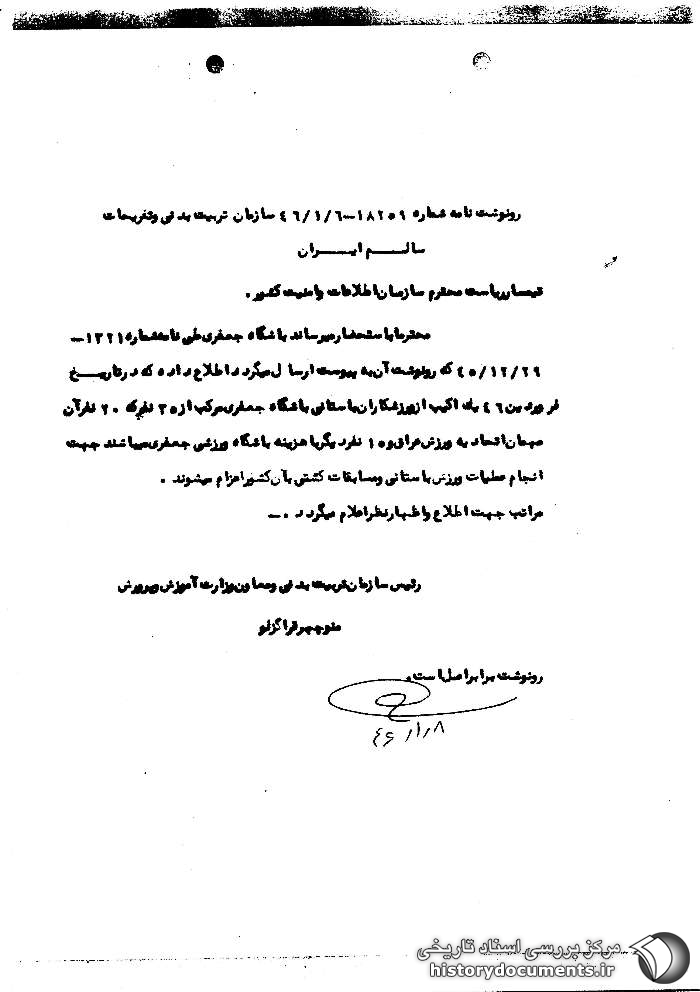 رونوشت نامه شماره ۱۸۲۵۹-۴۶/۱/۶ سازمان تربیت بدنی وتفریحات
سالم ایران
تیمسار ریاست محترم سازمان اطلاعات وامنیت کشور .
محترما باستحضار میرساند باشگاه جعفری طی نامه شماره ۱۳۲۱-
۴۵/۱۲/۲۹ که رونوشت آن به پیوست ارسال میگردد اطلاع داده که در تاریخ
فروردین ۴۶ یک اکیپ از ورزشکاران باستانی باشگاه جعفری مرکب از ۳۵ نفر که ۲۰ نفر آن
میهمان اتحادیه ورزش عراق و ۱۵ نفر دیگر با هزینه باشگاه ورزشی جعفری میباشند جهت
انجام عملیات ورزش باستانی ومسابقات کشتی بآن کشور اعزام میشوند .
مراتب جهت اطلاع واظهار نظر اعلام میگردد .-
رئیس سازمان تربیت بدنی ومعاون وزارت آموزش وپرورش
منوچهر قراگزلو
رونوشت برابر اصل است.
۴۶/۱/۸
مرکز بررسی اسناد تاریخی
historydocuments.ir